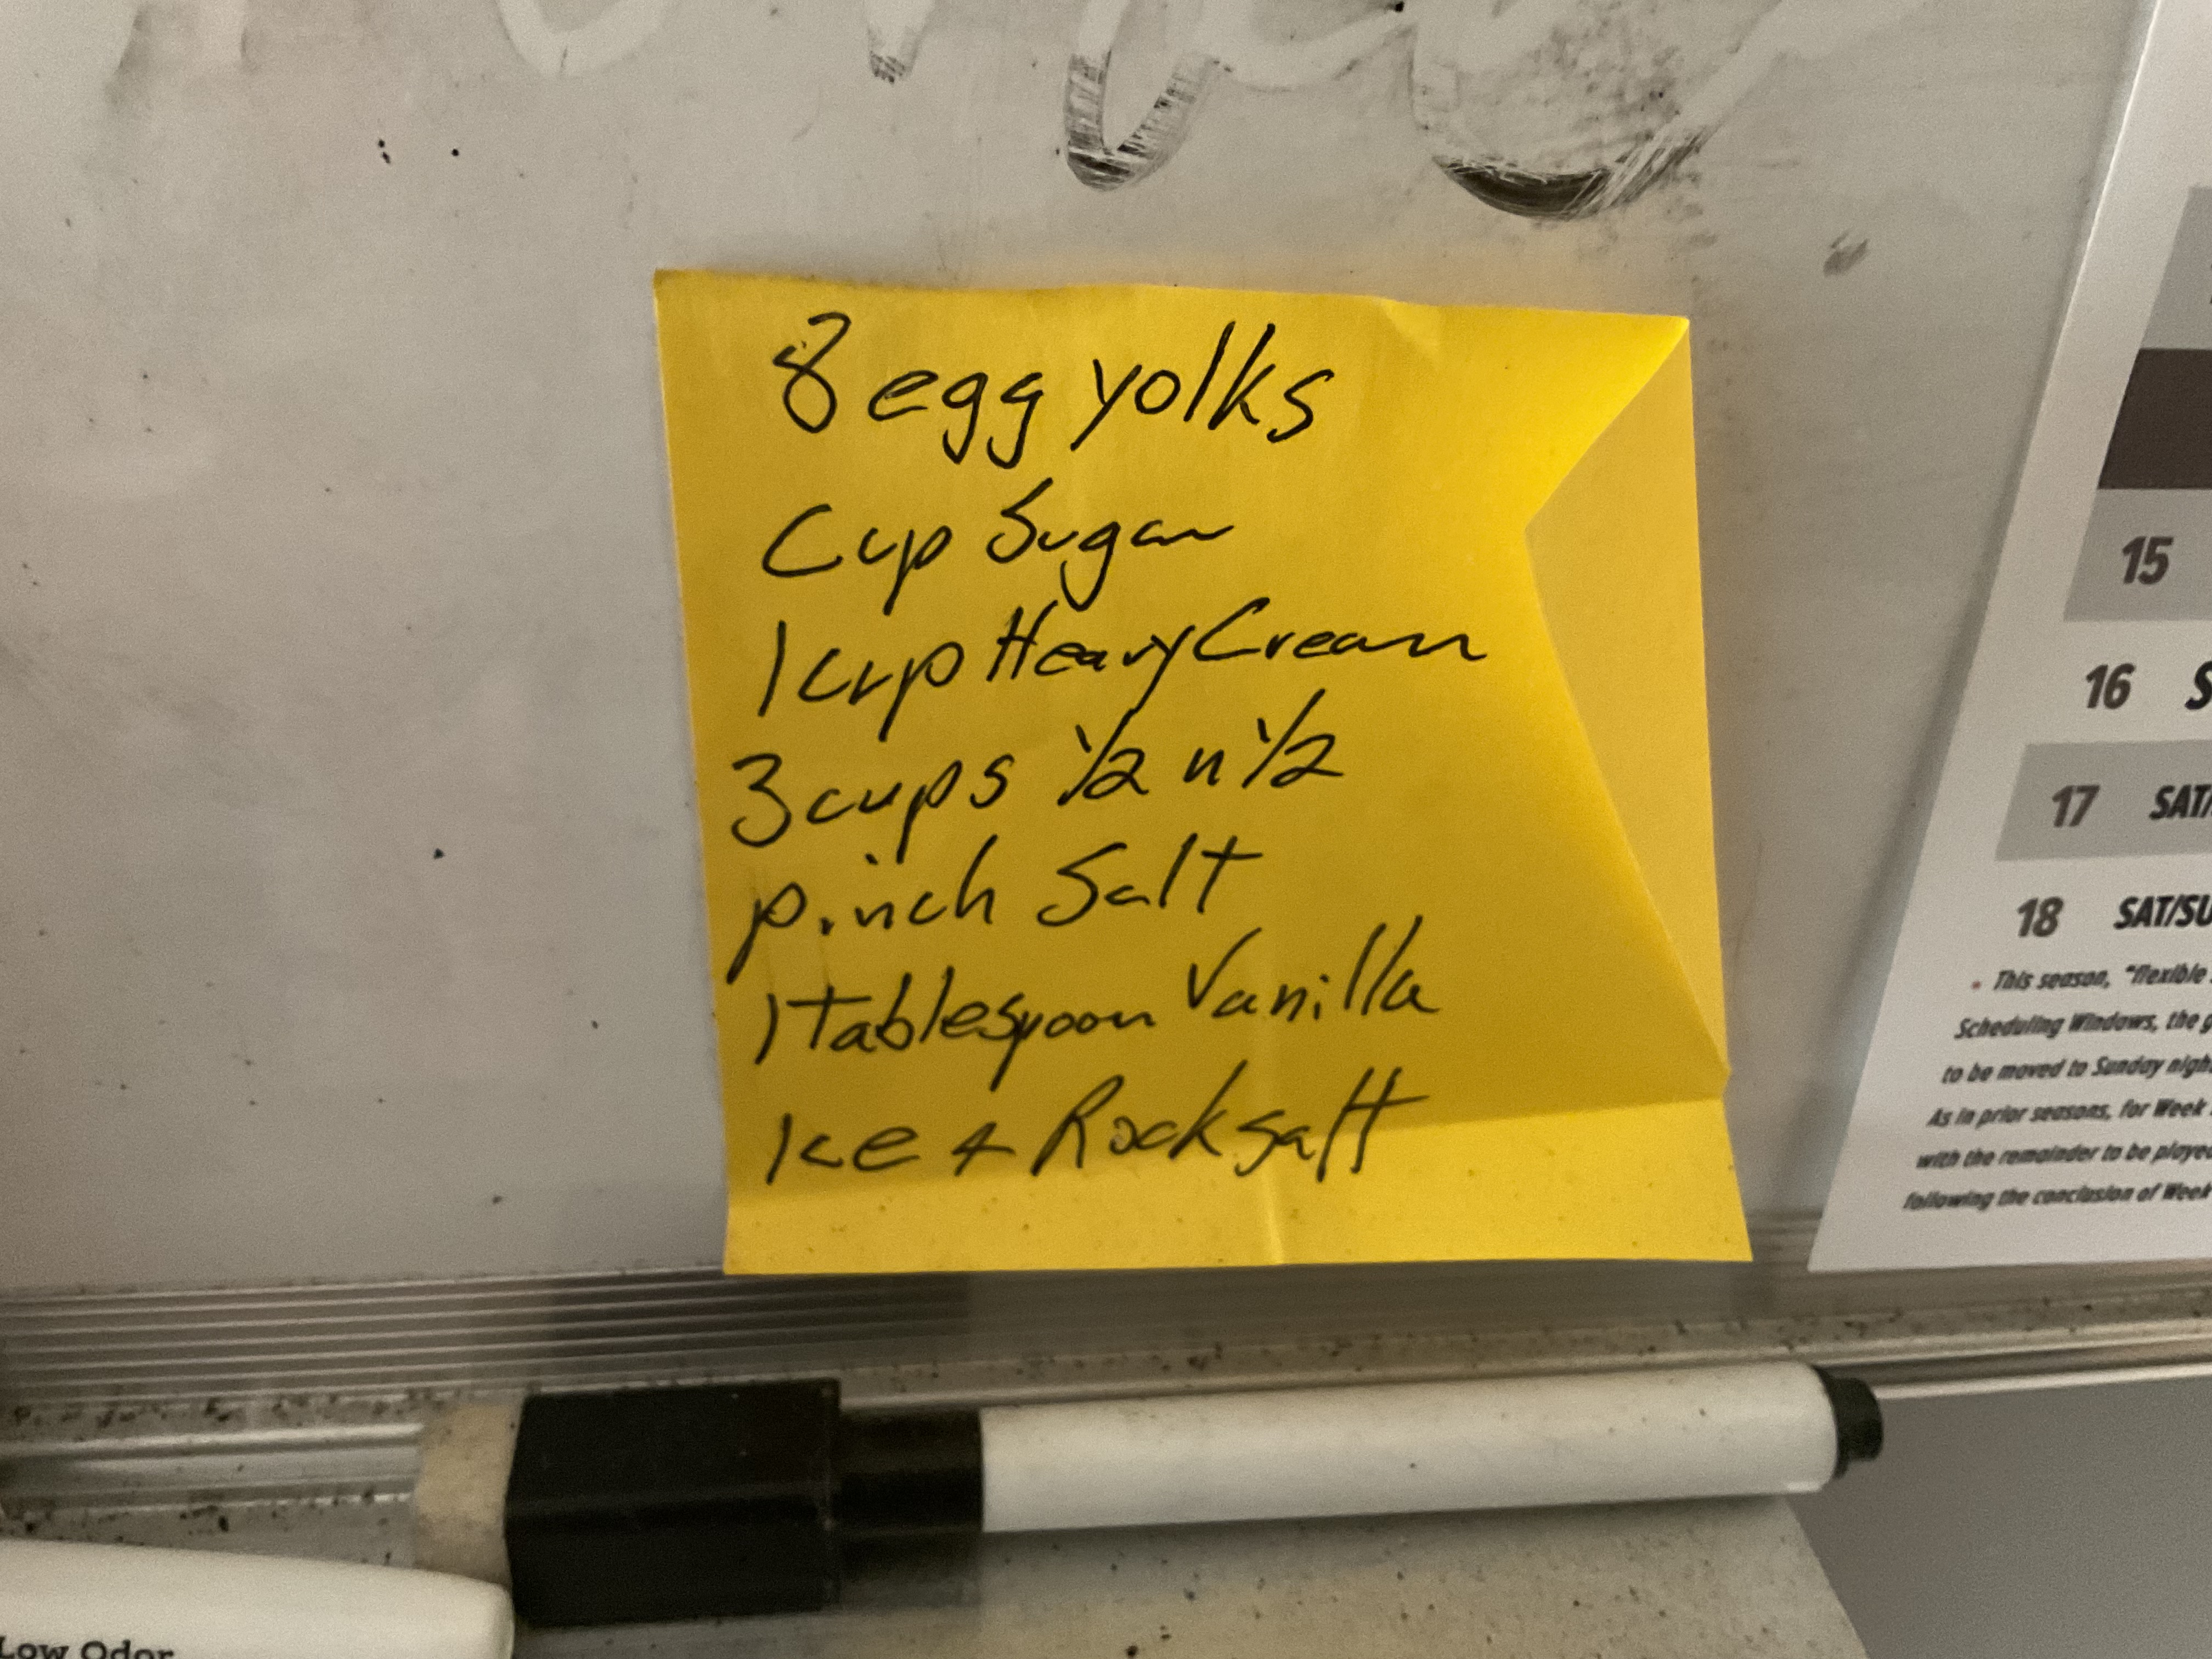 8 egg yolks
Cup Sugar
1 cup Heavy Cream
3 cups 1/2 n 1/2
pinch Salt
1 Tablespoon Vanilla
Ice + Rock salt
15
16
17 SAT/
18 SAT/SU
• This season, "flexible
Scheduling Windows, the
to be moved to Sunday nigh
As in prior seasons, for Week
with the remainder to be played
following the conclusion of Week
Low Odor